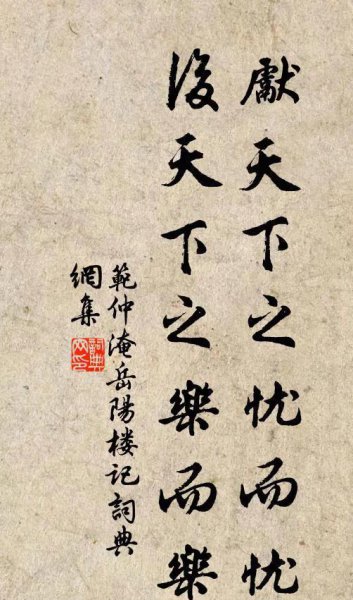 獻天下之忧而忧
後天下之樂而樂
範仲淹岳陽楼記詞典
網集